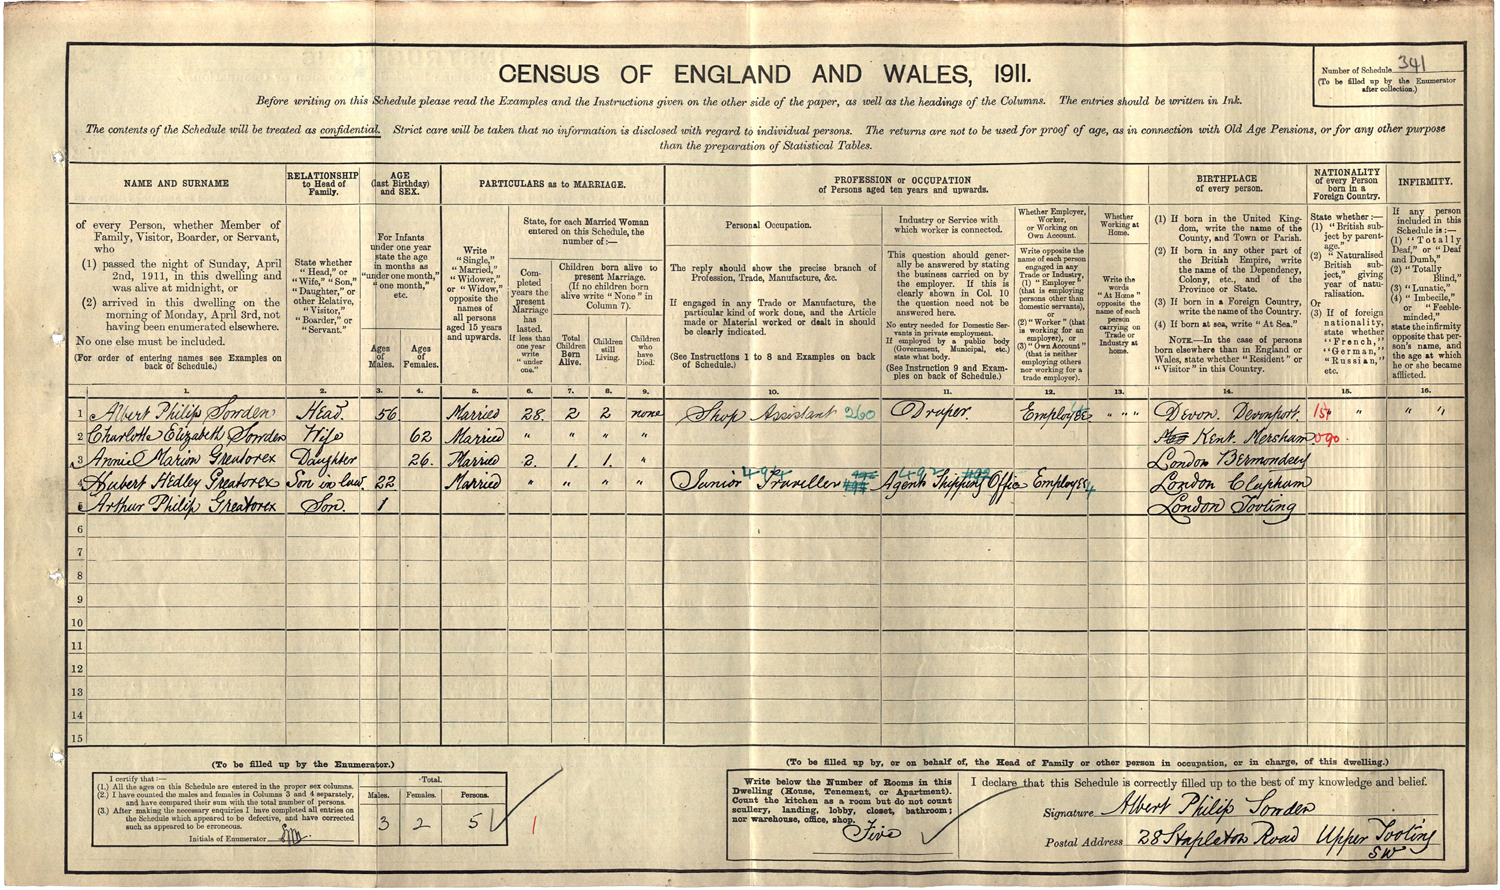 CENSUS OF ENGLAND AND WALES, 1911.
Number of Schedule 341
(To be filled up by the Enumerator
after collection.)
Before writing on this Schedule please read the Examples and the Instructions given on the other side of the paper, as well as the headings of the Columns. The entries should be written in Ink.
The contents of the Schedule will be treated as confidential. Strict care will be taken that no information is disclosed with regard to individual persons. The returns are not to be used for proof of age, as in connection with Old Age Pensions, or for any other purpose
than the preparation of Statistical Tables.
NAME AND SURNAME
of every Person, whether Member of
Family, Visitor, Boarder, or Servant,
who
(1) passed the night of Sunday, April
2nd, 1911, in this dwelling and
was alive at midnight, or
(2) arrived in this dwelling on the
morning of Monday, April 3rd, not
having been enumerated elsewhere.
No one else must be included.
(For order of entering names see Examples on
back of Schedule.)
RELATIONSHIP
to Head of
Family.
State whether
"Head," or
"Wife," "Son,"
"Daughter," or
other Relative,
"Visitor,"
"Boarder," or
"Servant."
AGE
(last Birthday)
and SEX.
For Infants
under one year
state the age
in months as
"under one month,"
"one month,"
etc.
Ages
of
Males.
Ages
of
Females.
PARTICULARS as to MARRIAGE.
Write
"Single,"
"Married,"
"Widower,"
or "Widow,"
opposite the
names of
all persons
aged 15 years
and upwards.
State, for each Married Woman
entered on this Schedule, the
number of:—
Com-
pleted
years the
present
Marriage
has
lasted.
If less than
one year
write
"under
one."
Children born alive to
present Marriage.
(If no children born
alive write "None" in
Column 7).
Total
Children
Born
Alive.
Children
still
Living.
Children
who
have
Died.
PROFESSION or OCCUPATION
of Persons aged ten years and upwards.
Personal Occupation.
The reply should show the precise branch of
Profession, Trade, Manufacture, &c.
If engaged in any Trade or Manufacture, the
particular kind of work done, and the Article
made or Material worked or dealt in should
be clearly indicated.
(See Instructions 1 to 8 and Examples on back
of Schedule.)
Industry or Service with
which worker is connected.
This question should gener-
ally be answered by stating
the business carried on by
the employer. If this is
clearly shown in Col. 10
the question need not be
answered here.
No entry needed for Domestic Ser-
vants in private employment.
If employed by a public body
(Government, Municipal, etc.)
state what body.
(See Instruction 9 and Exam-
ples on back of Schedule.)
Whether Employer,
Worker,
or Working on
Own Account.
Write opposite the
name of each person
engaged in any
Trade or Industry,
(1) "Employer"
(that is employing
persons other than
domestic servants),
or
(2) "Worker" (that
is working for an
employer), or
(3) "Own Account"
(that is neither
employing others
nor working for a
trade employer).
Whether
Working at
Home.
Write the
words
"At Home"
opposite the
name of each
person
carrying on
Trade or
Industry at
home.
BIRTHPLACE
of every person.
(1) If born in the United King-
dom, write the name of the
County, and Town or Parish.
(2) If born in any other part of
the British Empire, write
the name of the Dependency,
Colony, etc., and of the
Province or State.
(3) If born in a Foreign Country,
write the name of the Country.
(4) If born at sea, write "At Sea."
NOTE.—In the case of persons
born elsewhere than in England or
Wales, state whether "Resident" or
"Visitor" in this Country.
NATIONALITY
of every Person
born in a
Foreign Country.
State whether:—
(1) "British sub-
ject by parent-
age."
(2) "Naturalised
British sub-
ject," giving
year of natu-
ralisation.
Or
(3) If of foreign
nationality,
state whether
"French,"
"German,"
"Russian,"
etc.
INFIRMITY.
If any person
included in this
Schedule is:—
(1) "Totally
Deaf," or "Deaf
and Dumb,"
(2) "Totally
Blind,"
(3) "Lunatic,"
(4) "Imbecile,"
or "Feeble-
minded,"
state the infirmity
opposite that per-
son's name, and
the age at which
he or she became
afflicted.
1. 2. 3. 4. 5. 6. 7. 8. 9. 10. 11. 12. 13. 14. 15. 16.
1 Albert Philip Sowden Head 56 Married 28 2 2 none Shop Assistant 260 Draper. Employee " " " Devon. Devonport. 154 " " "
2 Charlotte Elizabeth Sowden Wife 62 Married " " " " Kent. Mersham 090
3 Annie Marion Greatorex Daughter 26. Married 2. 1. 1. " London Bermondsey
4 Hubert Hedley Greatorex Son in law 22 Married " " " " Junior Traveller Agents Shipping Office Employee London Clapham
5 Arthur Philip Greatorex Son. 1 London Tooting
6
7
8
9
10
11
12
13
14
15
(To be filled up by the Enumerator.)
I certify that:—
(1.) All the ages on this Schedule are entered in the proper sex columns.
(2.) I have counted the males and females in Columns 3 and 4 separately,
and have compared their sum with the total number of persons.
(3.) After making the necessary enquiries I have completed all entries on
the Schedule which appeared to be defective, and have corrected
such as appeared to be erroneous.
Initials of Enumerator
Total.
Males. Females. Persons.
3 2 5
1
(To be filled up by, or on behalf of, the Head of Family or other person in occupation, or in charge, of this dwelling.)
Write below the Number of Rooms in this
Dwelling (House, Tenement, or Apartment).
Count the kitchen as a room but do not count
scullery, landing, lobby, closet, bathroom;
nor warehouse, office, shop.
Five
I declare that this Schedule is correctly filled up to the best of my knowledge and belief.
Signature Albert Philip Sowden
Postal Address 28 Stapleton Road Upper Tooting
SW